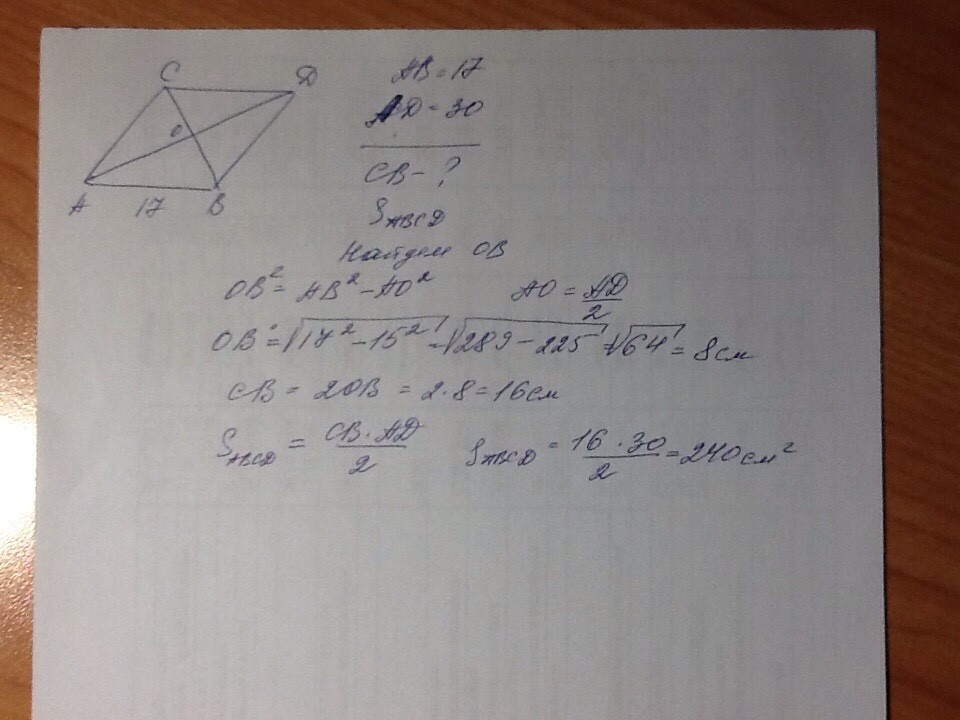 C D
O
A 17 B
AB = 17
AD = 30
CB - ?
S_ABCD
Найдем OB
OB² = AB² - AO² AO = AD/2
OB = √17² - 15² = √289 - 225 = √64 = 8 см
CB = 2OB = 2 · 8 = 16 см
S_ABCD = CB · AD/2 S_ABCD = 16 · 30/2 = 240 см²